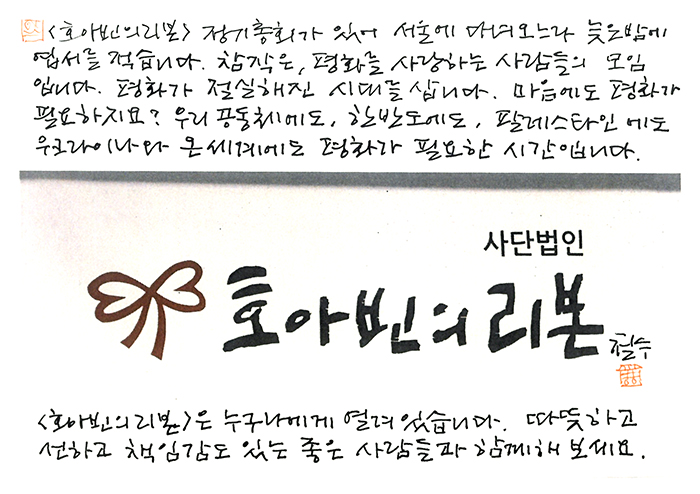 <호아빈의리본> 정기총회가 있어 서울에 다녀오느라 늦은밤에
엽서를 적습니다. 참 작은, 평화를 사랑하는 사람들의 모임
입니다. 평화가 절실해진 시대를 삽니다. 마음에도 평화가
필요하지요? 우리 공동체에도, 한반도에도, 팔레스타인에도
우크라이나와 온세계에도 평화가 필요한 시간입니다.
사단법인
호아빈의 리본
철수
<호아빈의리본>은 누구나에게 열려있습니다. 따뜻하고
선하고 책임감도 있는 좋은 사람들과 함께해 보세요.